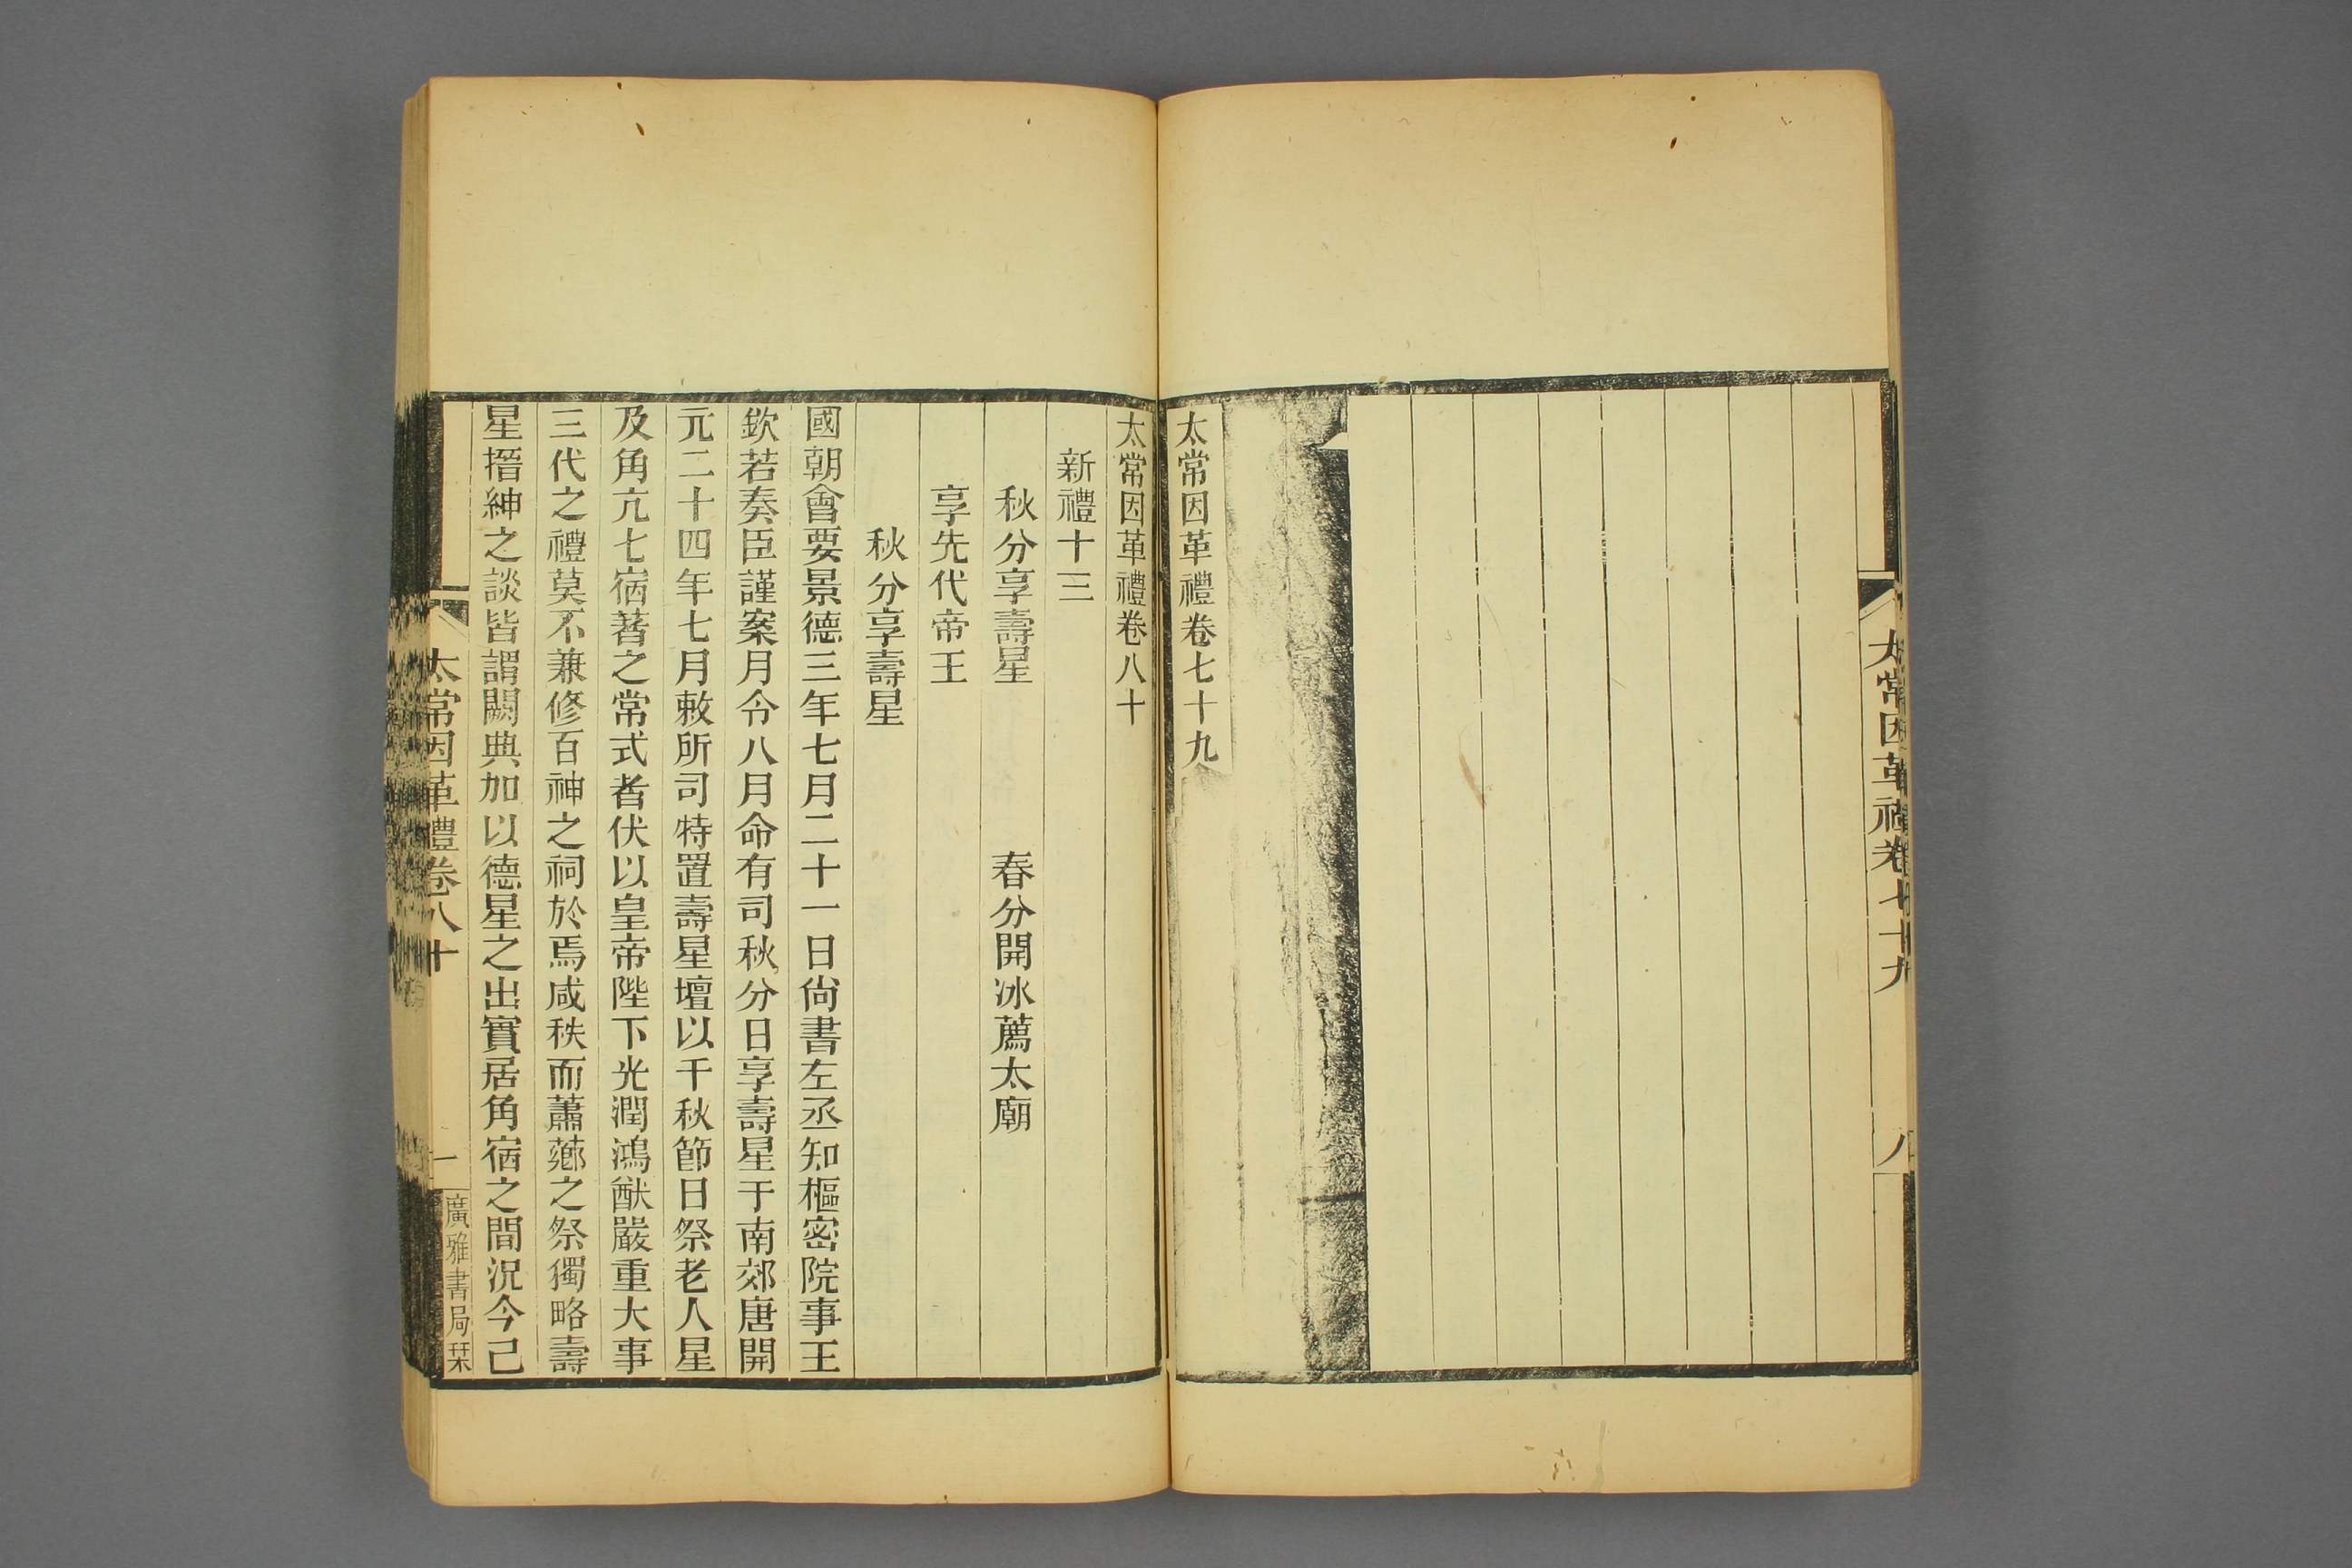 太常因革禮卷七十九
八
太常因革禮卷七十九
太常因革禮卷八十
新禮十三
秋分享壽星　春分開冰薦太廟
享先代帝王
秋分享壽星
國朝會要景德三年七月二十一日尙書左丞知樞密院事王
欽若奏臣謹案月令八月命有司秋分日享壽星于南郊唐開
元二十四年七月敕所司特置壽星壇以千秋節日祭老人星
及角亢七宿著之常式者伏以皇帝陛下光潤鴻猷嚴重大事
三代之禮莫不兼修百神之祠於焉咸秩而蕭薌之祭獨略壽
星搢紳之談皆謂闕典加以德星之出實居角宿之間況今己
太常因革禮卷八十
一
廣雅書局栞